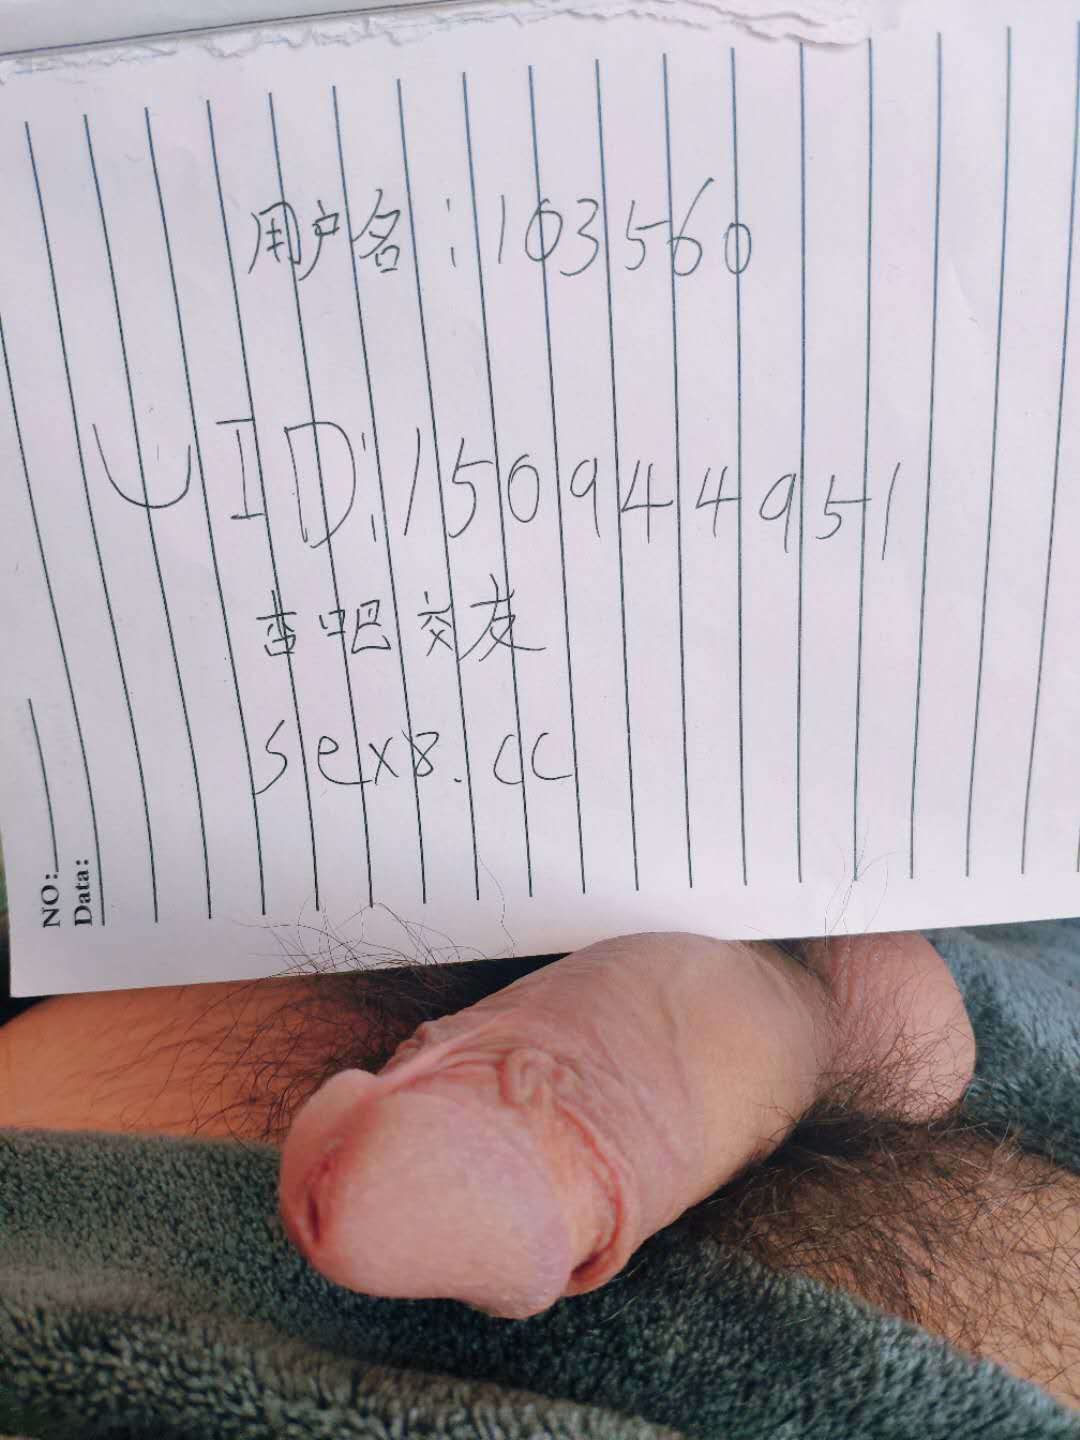 用户名：103560
UID:150944951
杏吧交友
sex8.cc
NO:
Data: